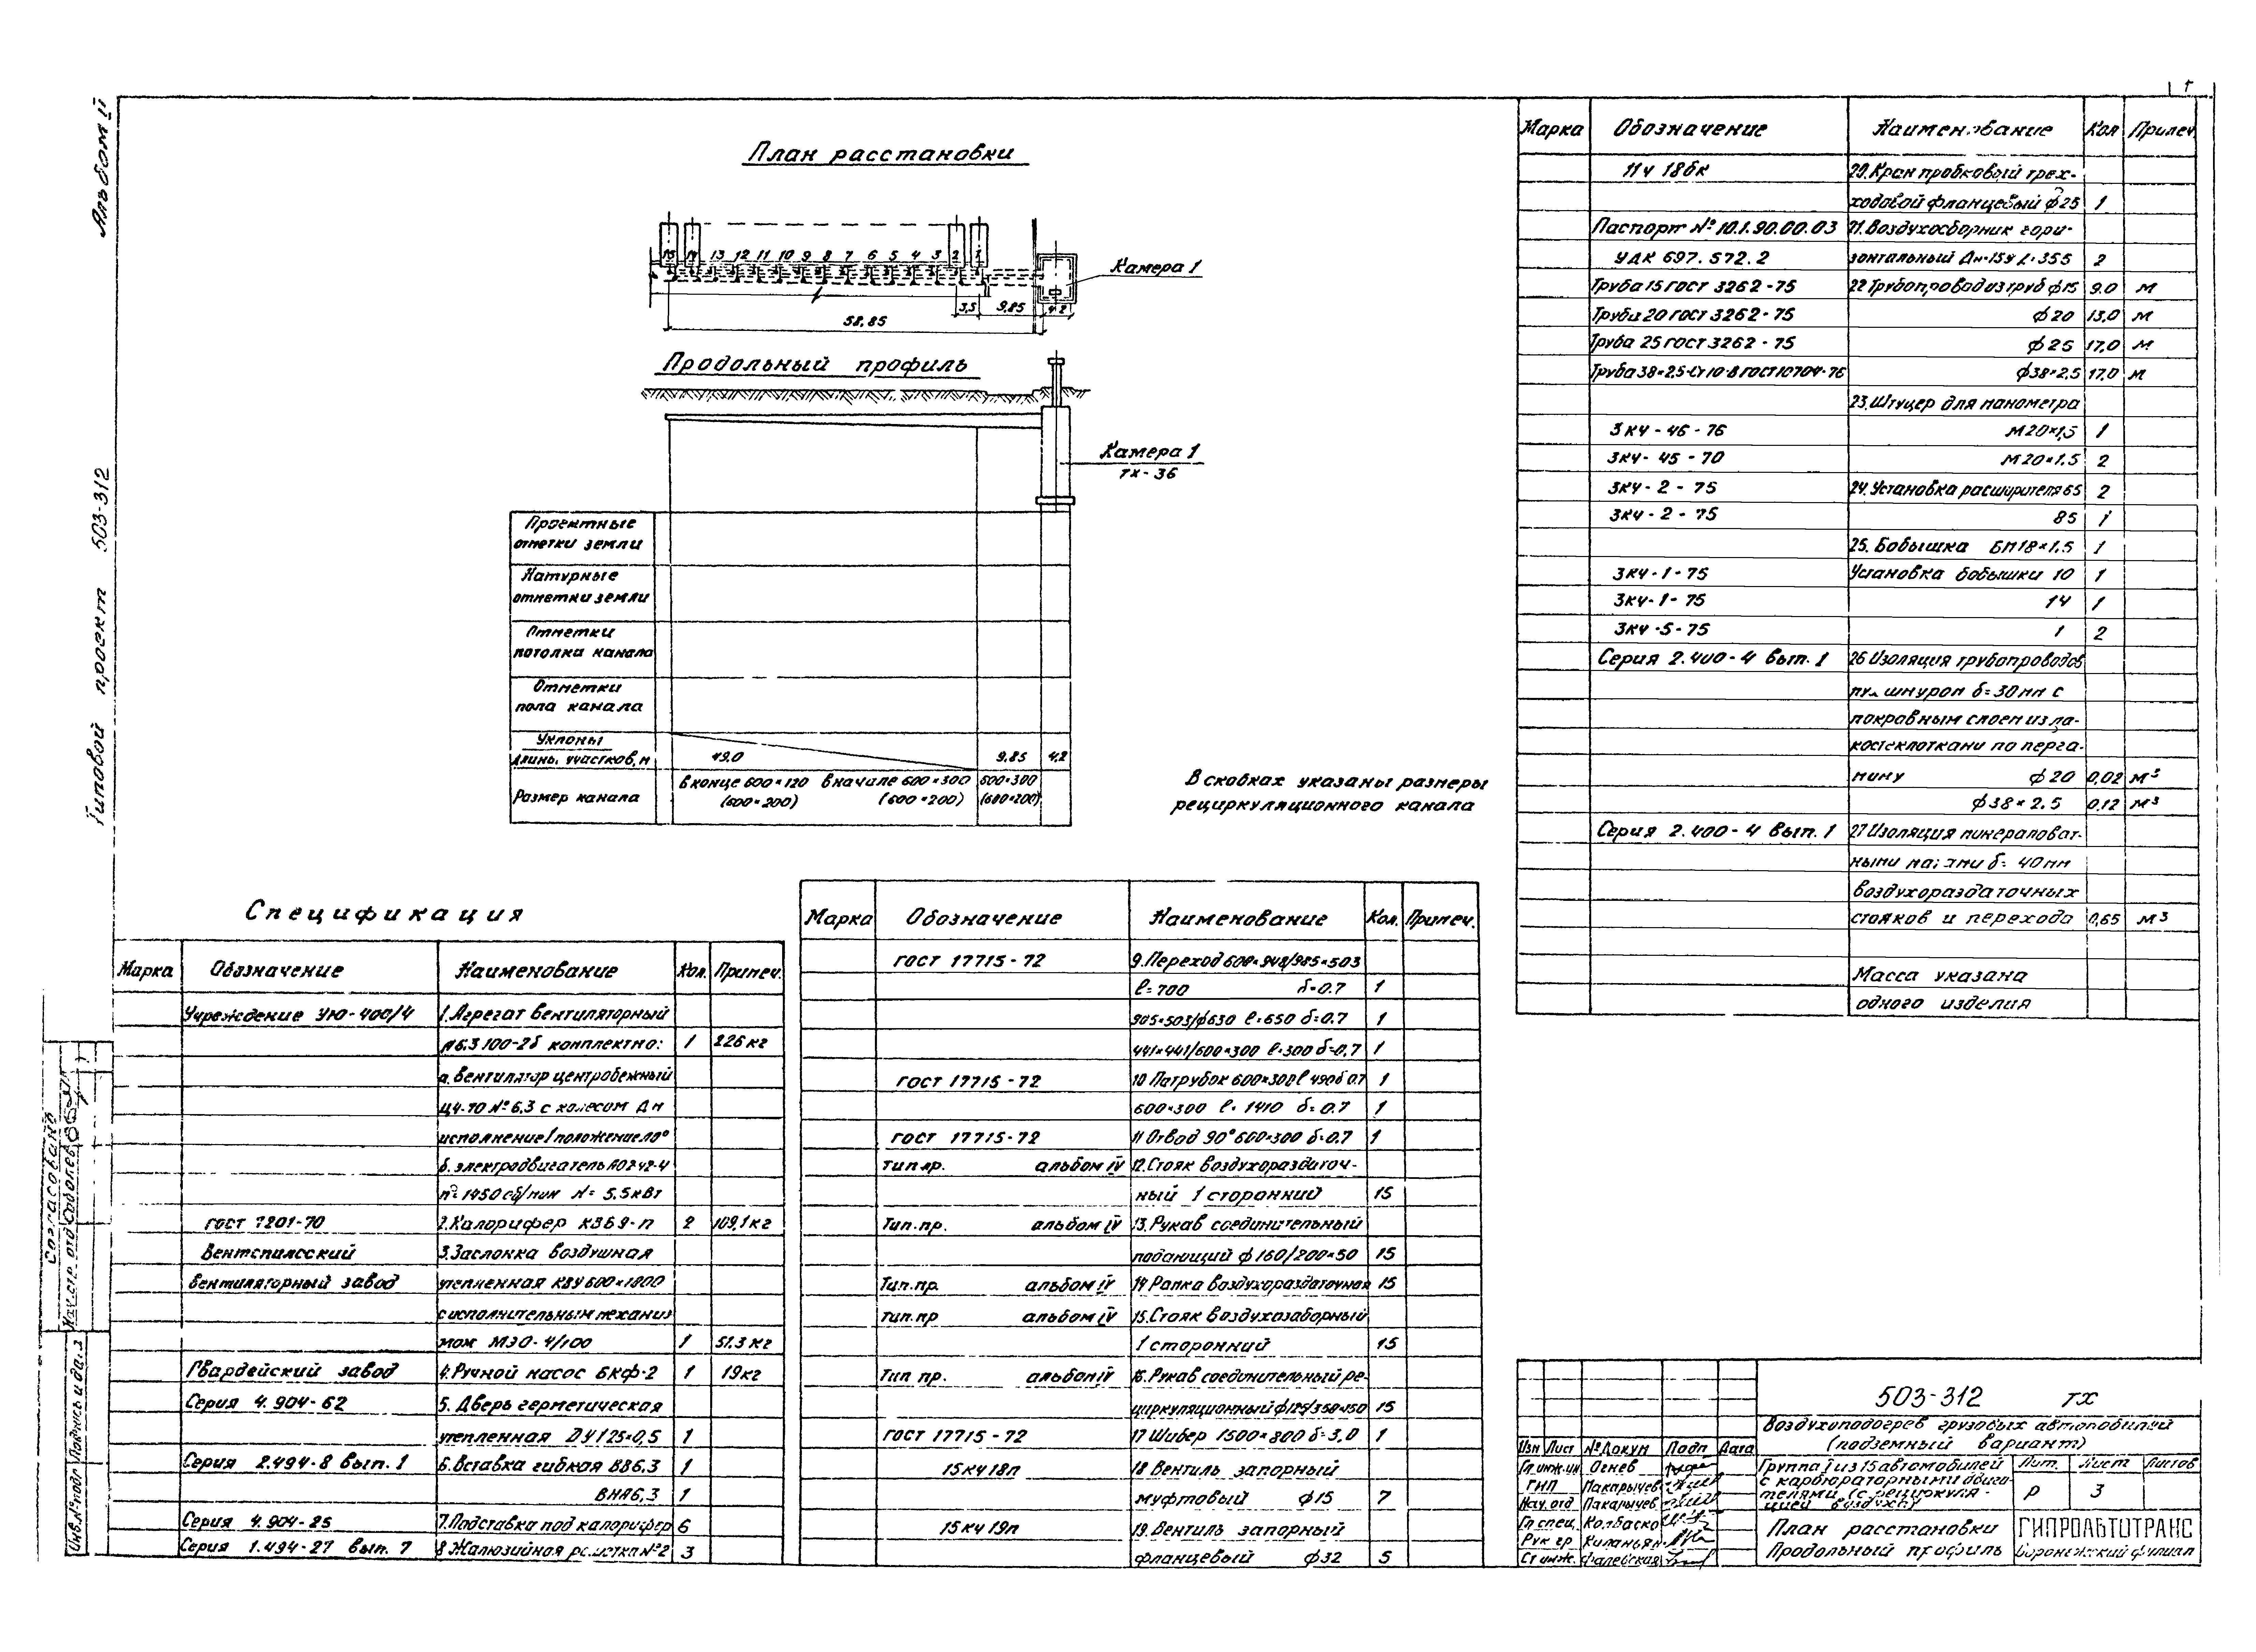 Альбом II
Типовой проект 503-312
План расстановки
15 14 13 12 11 10 9 8 7 6 5 4 3 2 1
Камера 1
3,5 9,85 4,2
58,85
Продольный профиль
Камера 1
ТХ-36
Проектные
отметки земли
Натурные
отметки земли
Отметки
потолка канала
Отметки
пола канала
Уклоны
Длины участков, м 49.0 9,85 4,2
Размер канала
в конце 600×120 в начале 600×300 600×300
(600×200) (600×200) (600×200)
В скобках указаны размеры
рециркуляционного канала
Спецификация
Марка Обозначение Наименование Кол. Примеч.
Учреждение УЮ-400/4 1. Агрегат вентиляторный
А6.3 100-2б комплектно: 1 226 кг
а. Вентилятор центробежный
Ц4-70 №6,3 с колесом Дн
исполнение 1 положение Л0°
б. электродвигатель АО2 42-4
n=1450 об/мин N= 5.5 кВт
ГОСТ 7201-70 2. Калорифер КВ69-п 2 109,1 кг
Вентспилсский 3. Заслонка воздушная
вентиляторный завод утепленная КВУ 600×1000
с исполнительным механиз
мом МЭО-4/100 1 51.3 кг
Гвардейский завод 4. Ручной насос БКФ-2 1 19 кг
Серия 4.904-62 5. Дверь герметическая
утепленная ДУ 1.25×0,5 1
Серия 2.494-8 вып. 1 6. Вставка гибкая ВВ6.3 1
ВНА6,3 1
Серия 4.904-25 7. Подставка под калорифер 6
Серия 1.494-27 вып. 7 8 Жалюзийная решетка №2 3
Марка Обозначение Наименование Кол. Примеч.
ГОСТ 17715-72 9. Переход 600×948/985×503
ℓ=700 δ=0.7 1
905×503/ф630 ℓ=650 δ=0.7 1
441×441/600×300 ℓ=300 δ=0,7 1
ГОСТ 17715-72 10 Патрубок 600×300 ℓ 490 δ 0.7 1
600×300 ℓ= 1410 δ=0.7 1
ГОСТ 17715-72 11 Отвод 90° 600×300 δ=0.7 1
тип.пр. альбом IV 12. Стояк воздухораздаточ-
ный 1 сторонний 15
Тип.пр. альбом IV 13. Рукав соединительный
подающий ф160/200×50 15
Тип.пр. альбом IV 14 Рамка воздухораздаточная 15
тип.пр альбом IV 15. Стояк воздухозаборный
1 сторонний 15
Тип пр. альбом IV 16. Рукав соединительный ре-
циркуляционный 15
ГОСТ 17715-72 17 Шибер 1500×800 δ=3,0 1
15кч18п 18 Вентиль запорный
муфтовый ф15 7
15кч19п 19. Вентиль запорный
фланцевый ф32 5
Марка Обозначение Наименование Кол Примеч.
11ч 18бк 20. Кран пробковый трех-
ходовой фланцевый ф25 1
Паспорт № 10.1.90.00.03 21. Воздухосборник гори-
УДК 697.572.2 зонтальный Дн=159 L=355 2
Труба 15 ГОСТ 3262-75 22 Трубопровод из труб ф15 9.0 м
Труба 20 ГОСТ 3262-75 ф20 13,0 м
Труба 25 ГОСТ 3262-75 ф25 17,0 м
Труба 38×2,5-Ст10-В ГОСТ 10704-76 ф38×2,5 17,0 м
23. Штуцер для манометра
ЗКЧ-46-76 М20×1,5 1
ЗКЧ-45-70 М20×1.5 2
ЗКЧ-2-75 24. Установка расширителя 65 2
ЗКЧ-2-75 85 1
25. Бобышка БП18×1.5 1
ЗКЧ-1-75 Установка бобышки 10 1
ЗКЧ-1-75 14 1
ЗКЧ-5-75 1 2
Серия 2.400-4 вып. 1 26 Изоляция трубопроводов
шнуром δ=30мм с
покровным слоем из ла-
костеклоткани по перга-
мину ф20 0,02 м³
ф38×2.5 0.12 м³
Серия 2.400-4 вып. 1 27 Изоляция минераловат-
ными матами δ=40мм
воздухораздаточных
стояков и перехода 0,65 м³
Масса указана
одного изделия
Согласовано
Нач. стр. отд Соболев
Инв. № подл Подпись и дата
503-312 ТХ
Воздухоподогрев грузовых автомобилей
(подземный вариант)
Изм Лист №Докум Подп Дата
Гл инж.ин Огнев
ГИП Макарычев
Нач. отд Макарычев
Гл спец. Колбаско
Рук гр
Ст инж.
Группа 1 из 15 автомобилей
с карбюраторными двига-
телями (с рециркуля-
цией воздуха)
Лит. Лист Листов
Р 3
План расстановки
Продольный профиль
ГИПРОАВТОТРАНС
Воронежский филиал